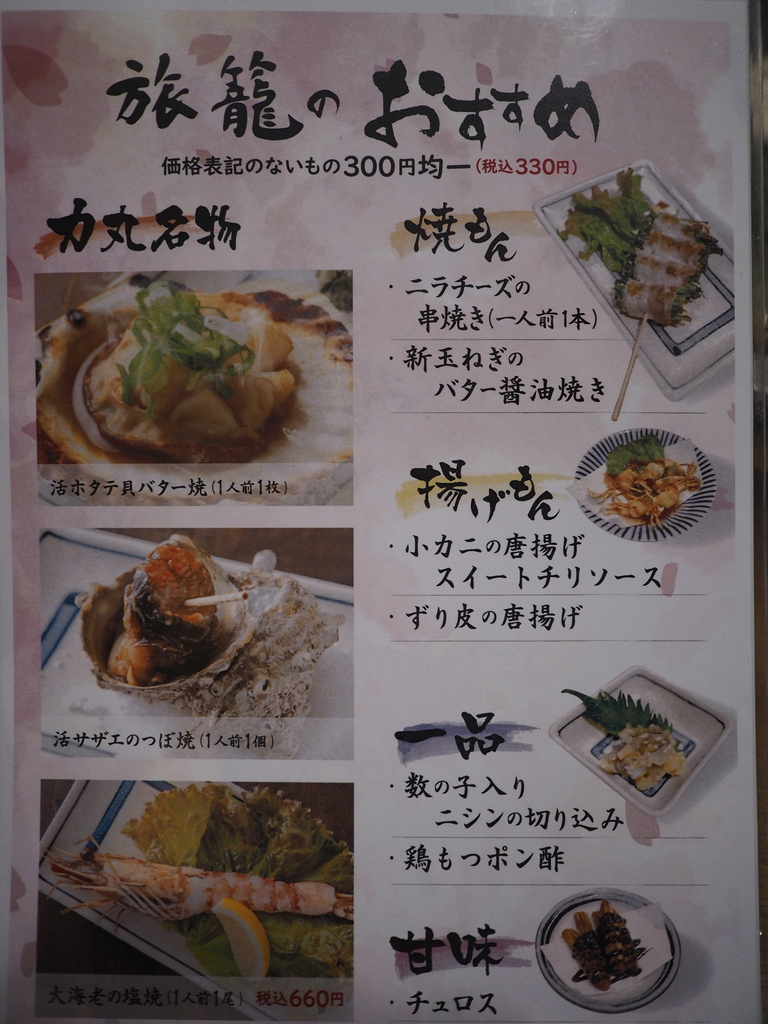 旅籠のおすすめ
価格表記のないもの300円均一(税込330円)
力丸名物
活ホタテ貝バター焼(1人前1枚)
活サザエのつぼ焼(1人前1個)
大海老の塩焼(1人前1尾) 税込660円
焼もん
・ニラチーズの
串焼き(一人前1本)
・新玉ねぎの
バター醤油焼き
揚げもん
・小カニの唐揚げ
スイートチリソース
・ずり皮の唐揚げ
一品
・数の子入り
ニシンの切り込み
・鶏もつポン酢
甘味
・チュロス